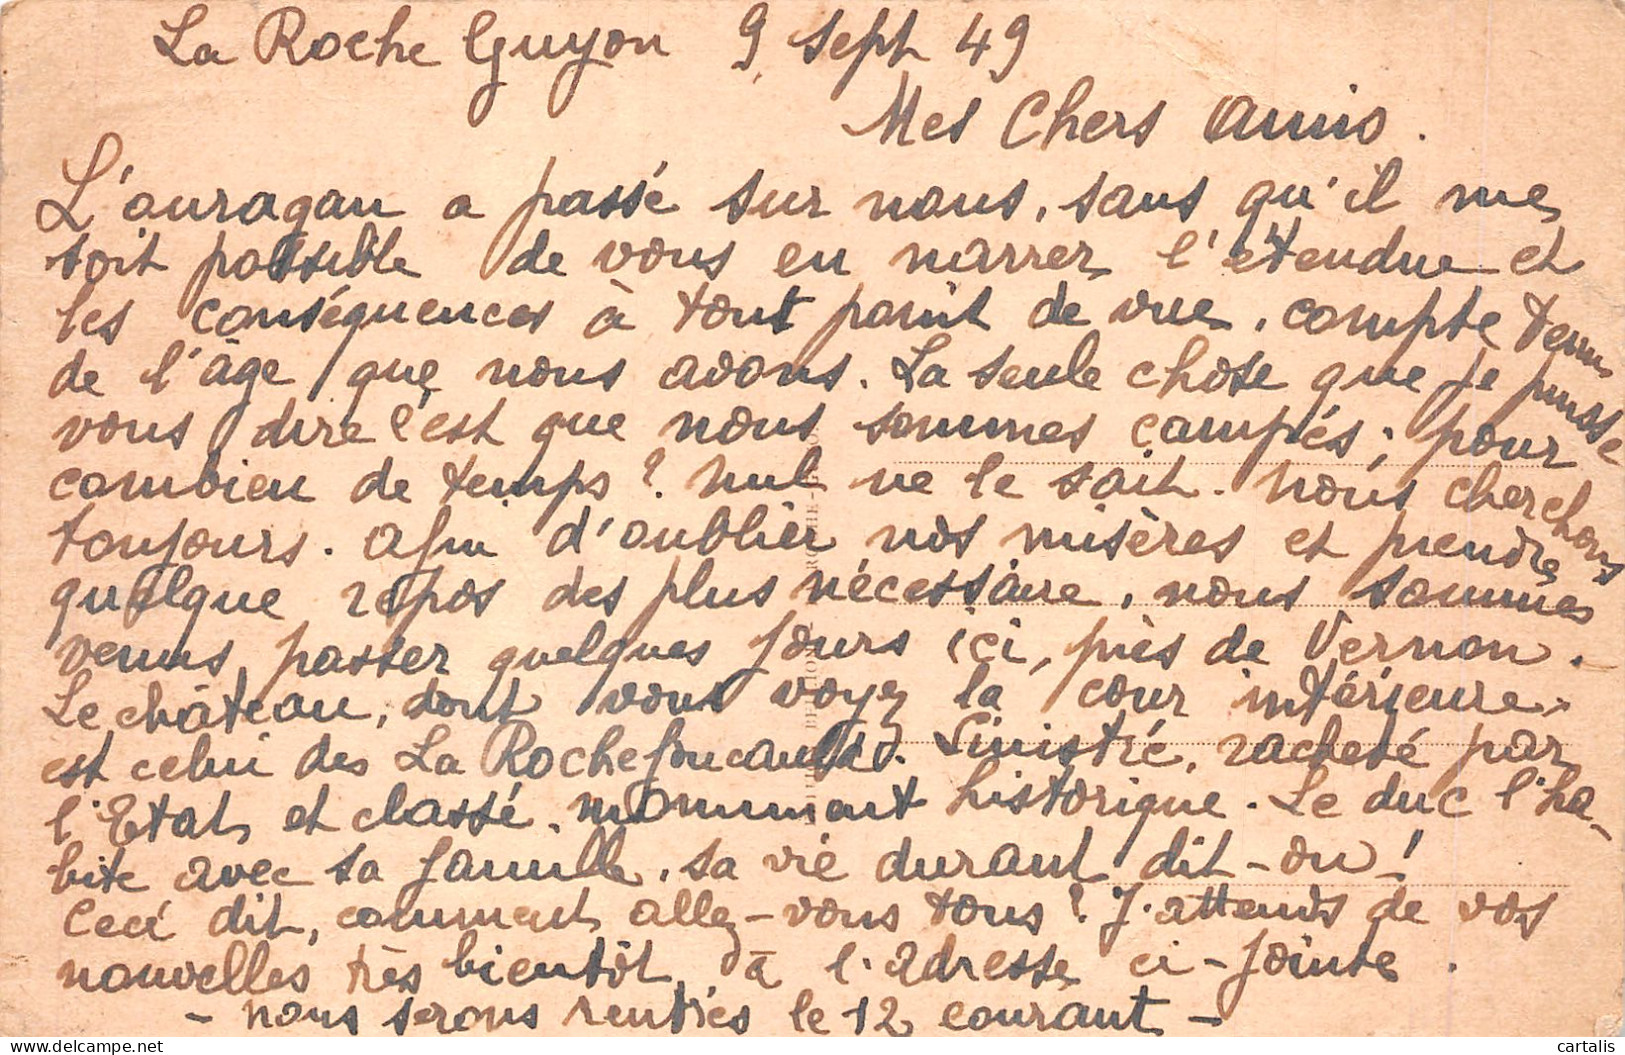 La Roche Guyon 9 Sept 49
Mes Chers Amis.
L'ouragan a passé sur nous, sans qu'il me
soit possible de vous en narrer l'étendue et
les conséquences à tout point de vue, compte tenu
de l'âge que nous avons. La seule chose que je puisse
vous dire c'est que nous sommes campés; pour
combien de temps? nul ne le sait. Nous cherchons
toujours. Afin d'oublier nos misères et prendre
quelque repos des plus nécessaire, nous sommes
venus passer quelques jours ici, près de Vernon.
Le château, dont vous voyez la cour intérieure,
est celui des La Rochefoucauld. Sinistré, racheté par
l'Etat, et classé monument historique. Le duc l'ha-
bite avec sa famille, sa vie durant dit-on!
Ceci dit, comment allez-vous tous? J'attends de vos
nouvelles très bientôt, à l'adresse ci-jointe.
- nous serons rentrés le 12 courant -
cartalis